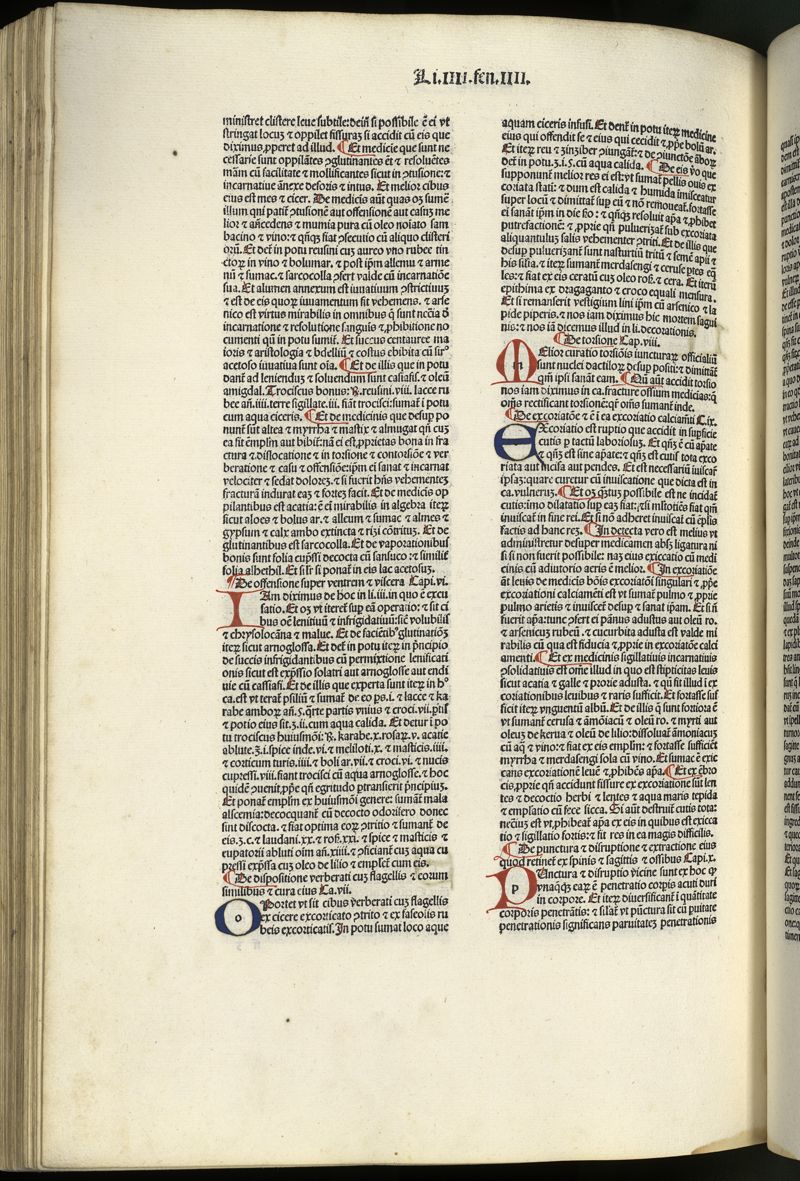 Li.IIII.fen.IIII.
ministret clistere leue subtile: dein̄ si possibile ē ei vt
stringat locuʒ ⁊ oppilet fissuraʒ si accidit cū eis que
diximus, pperet ad illud. ¶Et medicie que sunt ne
cessarie sunt oppilātes ꝯglutinantes ēt ⁊ resoluētes
mām cū facilitate ⁊ mollificantes sicut in ꝯtusione: ⁊
incarnatiue ānexe deforis ⁊ intus. Et melior cibus
eius est mes ⁊ cicer. De medicis aūt quas oʒ sumē
illum qui patit ꝯtusionē aut offensionē aut casuʒ me
lior ⁊ añcedens ⁊ mumia pura cū oleo noiato sam
bacino ⁊ vino: ⁊ qn̄qʒ fiat ꝯsecutio cū aliquo clisteri
oꝝ. Et deñt in potu reusini cuʒ aureo vno rubee tin
ctoꝝ in vino ⁊ bolumar. ⁊ post ip̄m allemu ⁊ arme
nū ⁊ sumac. ⁊ sarcocolla ꝯfert valde cū incarnatiōe
sua. Et alumen annexum est iuuatiuum ꝯstrictiuuʒ
⁊ est de eis quoꝝ iuuamentum fit vehemens. ⁊ arse
nico est virtus mirabilis in omnibus q̄ sunt nccīa ō
incarnatione ⁊ resolutione sanguis ⁊ ꝓhibitione no
cumenti qñ in potu sumit. Et succus centauree ma
ioris ⁊ aristologia ⁊ bdelliū ⁊ costus ebibita cū sirº
acetoso iuuatiua sunt oīa. ¶Et de illis que in potu
danť ad leniendus ⁊ soluendum sunt casiafis. ⁊ oleū
amigdal. Trociscus bonus: ꝶ. reusini. viii. lacce ru
bee añ. iiii. terre sigillate. iii. fiāt trocisci: sumať i potu
cum aqua ciceris. ¶Et de medicinis que desup po
nunť sūt altea ⁊ myrrha ⁊ mastix ⁊ almugat qñ cuʒ
ea sit emplm̄ aut bibiť: nā ei est ꝓprietas bona in fra
ctura ⁊ dislocatione ⁊ in torsione ⁊ contorsiōe ⁊ ver
beratione ⁊ casu ⁊ offensiōe: ip̄m ei sanat ⁊ incarnat
velociter ⁊ sedat doloreʒ. ⁊ si fuerit hn̄s vehementeʒ
fracturā indurat eaʒ ⁊ fortez facit. Et de medicis op
pilantibus est acatia: ē ei mirabilis in algebra iteʒ
sicut aloes ⁊ bolus ar. ⁊ alleum ⁊ sumac ⁊ almes ⁊
gypsum ⁊ calx ambo extincta ⁊ rizi cōtrituʒ. Et de
glutinantibus est sarcocolla. Et de vaporationibus
bonis sunt folia cup̄ssi decocta cū sansuco: ⁊ similiť
folia alberhel. Et si sr̄ si ponať in eis lac acetosuʒ.
¶De offensione super ventrem ⁊ viscera Capi. vi.
IAm diximus de hoc in li. iii. in quo ē excu
satio. Et oʒ vt itereť sup eā operatio: ⁊ sit ci
bus oē lenitiuū ⁊ infrigidatiuū: sic volubilis
⁊ chrysolocāna ⁊ malue. Et de faciētibº glutinatiōʒ
iteʒ sicut arnoglossa. Et deñt in potu iteʒ in prīcipio
de succis infrigidantibus cū permixtione lenificati
onis sicut est exp̄ssio solatri aut arnoglosse aut endi
uie cū cassiafi. Et de illis que experta sunt iteʒ in hº
ca. est vt teraꝉ psiliū ⁊ sumať de eo ʒs. i. ⁊ lacce ⁊ ka
rabe amboꝝ añ. ʒ. qrte partis vnius ⁊ croci. vii. prīs
⁊ potio eius sit. ʒ. ii. cum aqua calida. Et detur i po
tu trociscus huiusmōi: ꝶ. karabe. x. rosaꝝ. v. acatie
ablute. ʒ. i. spice inde. vi. ⁊ meliloti. x. ⁊ masticis. iiii.
⁊ corticum turis. iiii. ⁊ boli ar. vii. ⁊ croci. vi. ⁊ nucis
cupressi. viii. fiant trocisci cū aqua arnoglosse. ⁊ hoc
quidē ꝯuenit, ppe qñ egritudo ꝓtransierit p̄ncipiuʒ.
Et ponať emplm̄ ex huiusmōi genere: sumanť mala
alscemia: decocquanť cū decocto odorifero donec
sint discocta. ⁊ fiat optima eoꝝ ꝯtritio ⁊ sumanť de
eis. ʒ. c. ⁊ laudani. xx. ⁊ rosʒ. xxi. ⁊ spice ⁊ masticis ⁊
eupatorii abluti oīm añ. xiiii. ⁊ ꝯficiant̄ cuʒ aqua cu
pressi exp̄ssa cuʒ oleo de lilio ⁊ emplet̄ cum eis.
¶De dispositione verberati cuʒ flagellis ⁊ eorum
similibus ⁊ cura eius Ca. vii.
OPortet vt sit cibus verberati cuʒ flagellis
ex cicere excorticato ꝯtrito ⁊ ex faseolis ru
beis excorticatis. In potu sumat loco aque
aquam ciceris infusi. Et denť in potu iteʒ medicine
eius qui offendit se ⁊ eius qui cecidit ⁊ ꝓpe bolū ar.
Et iteʒ reu ⁊ zinziber ꝯiungāt: ⁊ de ꝯiunctōe āboꝝ
deť in potu. ʒ. i. s. cū aqua calida. ¶De eis v̄o que
supponunť melior res ei est: vt sumať pellis ouis ex
coriata stati: ⁊ dum est calida ⁊ humida imisceatur
super locū ⁊ dimittať sup eū ⁊ nō remoueať. fortasse
ei sanať ip̄m in die ſʒo: ⁊ qn̄qʒ resoluit ap̄a ⁊ ꝓhibet
putrefactionē: ⁊ ꝓprie qñ puluerizať sub excoriata
aliquantuluʒ salis vehementer ꝯtriti. Et de illis que
desup puluerizant̄ sunt nasturtiū tritū ⁊ semē apii ⁊
his silia. ⁊ iteʒ sumanť merdasengi ⁊ ceruse ptes eq̄
les: ⁊ fiat ex eis ceratū cuʒ oleo ros. ⁊ cera. Et iterū
epithima ex dragaganto ⁊ croco equali mensura.
Et si remanserit vestigium lini ip̄m cū arsenico ⁊ la
pide piperis. ⁊ nos iam diximus hic mortem sagui
nis: ⁊ nos iā dicemus illud in li. decorationis.
¶De torsione Cap. viii.
MElior curatio torsiōis iuncturaꝝ officialiū
sunt nuclei dactiloꝝ desup positi: ⁊ dimittāť
qm̄ ipsi sanāt eam. ¶Nū aūt accidit torsio
nos iam diximus in ca. fracture ossium medicias: q̄
om̄s rectificant torsionē: q̄r om̄s sumanť inde.
¶De excoriatiōe ⁊ ē i ea excoriatio calciamti C. ix.
EXcoriatio est ruptio que accidit in supficie
cutis p tactū laboriosuʒ. Et qñʒ ē cū ap̄ate
⁊ qñʒ est sine ap̄ate: ⁊ qñʒ est cutis tota exco
riata aut īncisa aut pendes. Et est necessariū iuiscať
ipsaʒ: quare curetur cū inuiscatione que dicta est in
ca. vulneruʒ. ¶Et oʒ q̄tuʒ possibile est ne incidať
cutis: imo dilatatio sup eaʒ fiat: ⁊ si mltotiēs fiat qm̄
inuiscať in fine rei. Et si nō adheret inuiscať cū ep̄lis
factis ad hanc reʒ. ¶In detecta vero est melius vt
administretur desuper medicamen absqʒ ligatura ni
si si non fuerit possibile: naʒ eius exiccatio cū medi
cinis cū adiutorio aeris ē melior. ¶In excoriatiōe
aūt leuis de medicis bōis excoriatōi singulari ⁊ ꝓpe
excoriationi calciamēti est vt sumať pulmo ⁊ ꝓprie
pulmo arietis ⁊ inuisceť desup ⁊ sanat ip̄am. Et si n̄
fuerit ap̄a: tunc ꝯfert ei pānus adustus aut oleū ro.
⁊ arsenicuʒ rubeū. ⁊ cucurbita adusta est valde mi
rabilis cū qua est fiducia ⁊ ꝓprie in excoriatōe calci
amenti. ¶Et ex medicinis sigillatiuis incarnatiuis
ꝯsolidatiuis est om̄e illud in quo est stipticitas leuis
sicut acatia ⁊ galle ⁊ prope adusta. ⁊ qn̄ fit illud ī ex
coriationibus leuibus ⁊ raris sufficit. Et fortasse suf
ficit iteʒ vnguentū albū. Et de illis q̄ sunt fortiora ē
vt sumanť cerusa ⁊ āmōiacū ⁊ oleū ro. ⁊ myrti aut
oleuʒ de kerua ⁊ oleū de lilio: dissoluať āmoniacuʒ
cū aq̄ ⁊ vino: ⁊ fiat ex eis emplm̄: ⁊ fortasse sufficiet
myrrha ⁊ merdasengi sola cū vino. Et sumac ē exic
cans excoriationē leuē ⁊ ꝓhibēs ap̄a. ¶Et ex ēbro
cis, pprie qñ accidunt fissure ex excoriatione sūt len
tes ⁊ decoctio herbi ⁊ lentes ⁊ aqua maris tepida
⁊ emplatio cū fece sicca. Si aūt destruiť cutis tota:
nec̄ius est vt ꝓhibeať ap̄a ex eis in quibus est exicca
tio ⁊ sigillatio fortis: ⁊ fit res in ea magis difficilis.
¶De punctura ⁊ disruptione ⁊ extractione eius
quod retinet̄ ex spinis ⁊ sagittis ⁊ ossibus Capi. x.
PUnctura ⁊ disruptio vicine sunt ex hoc ꝙ
vnaqʒqʒ eaꝝ ē penetratio corpis acuti duri
in corpore. Et iteʒ diuersificanť i quātitate
corporis penetrātis: ⁊ silať vt pūctura sit cū puitate
penetrationis significans paruitateʒ penetrationis